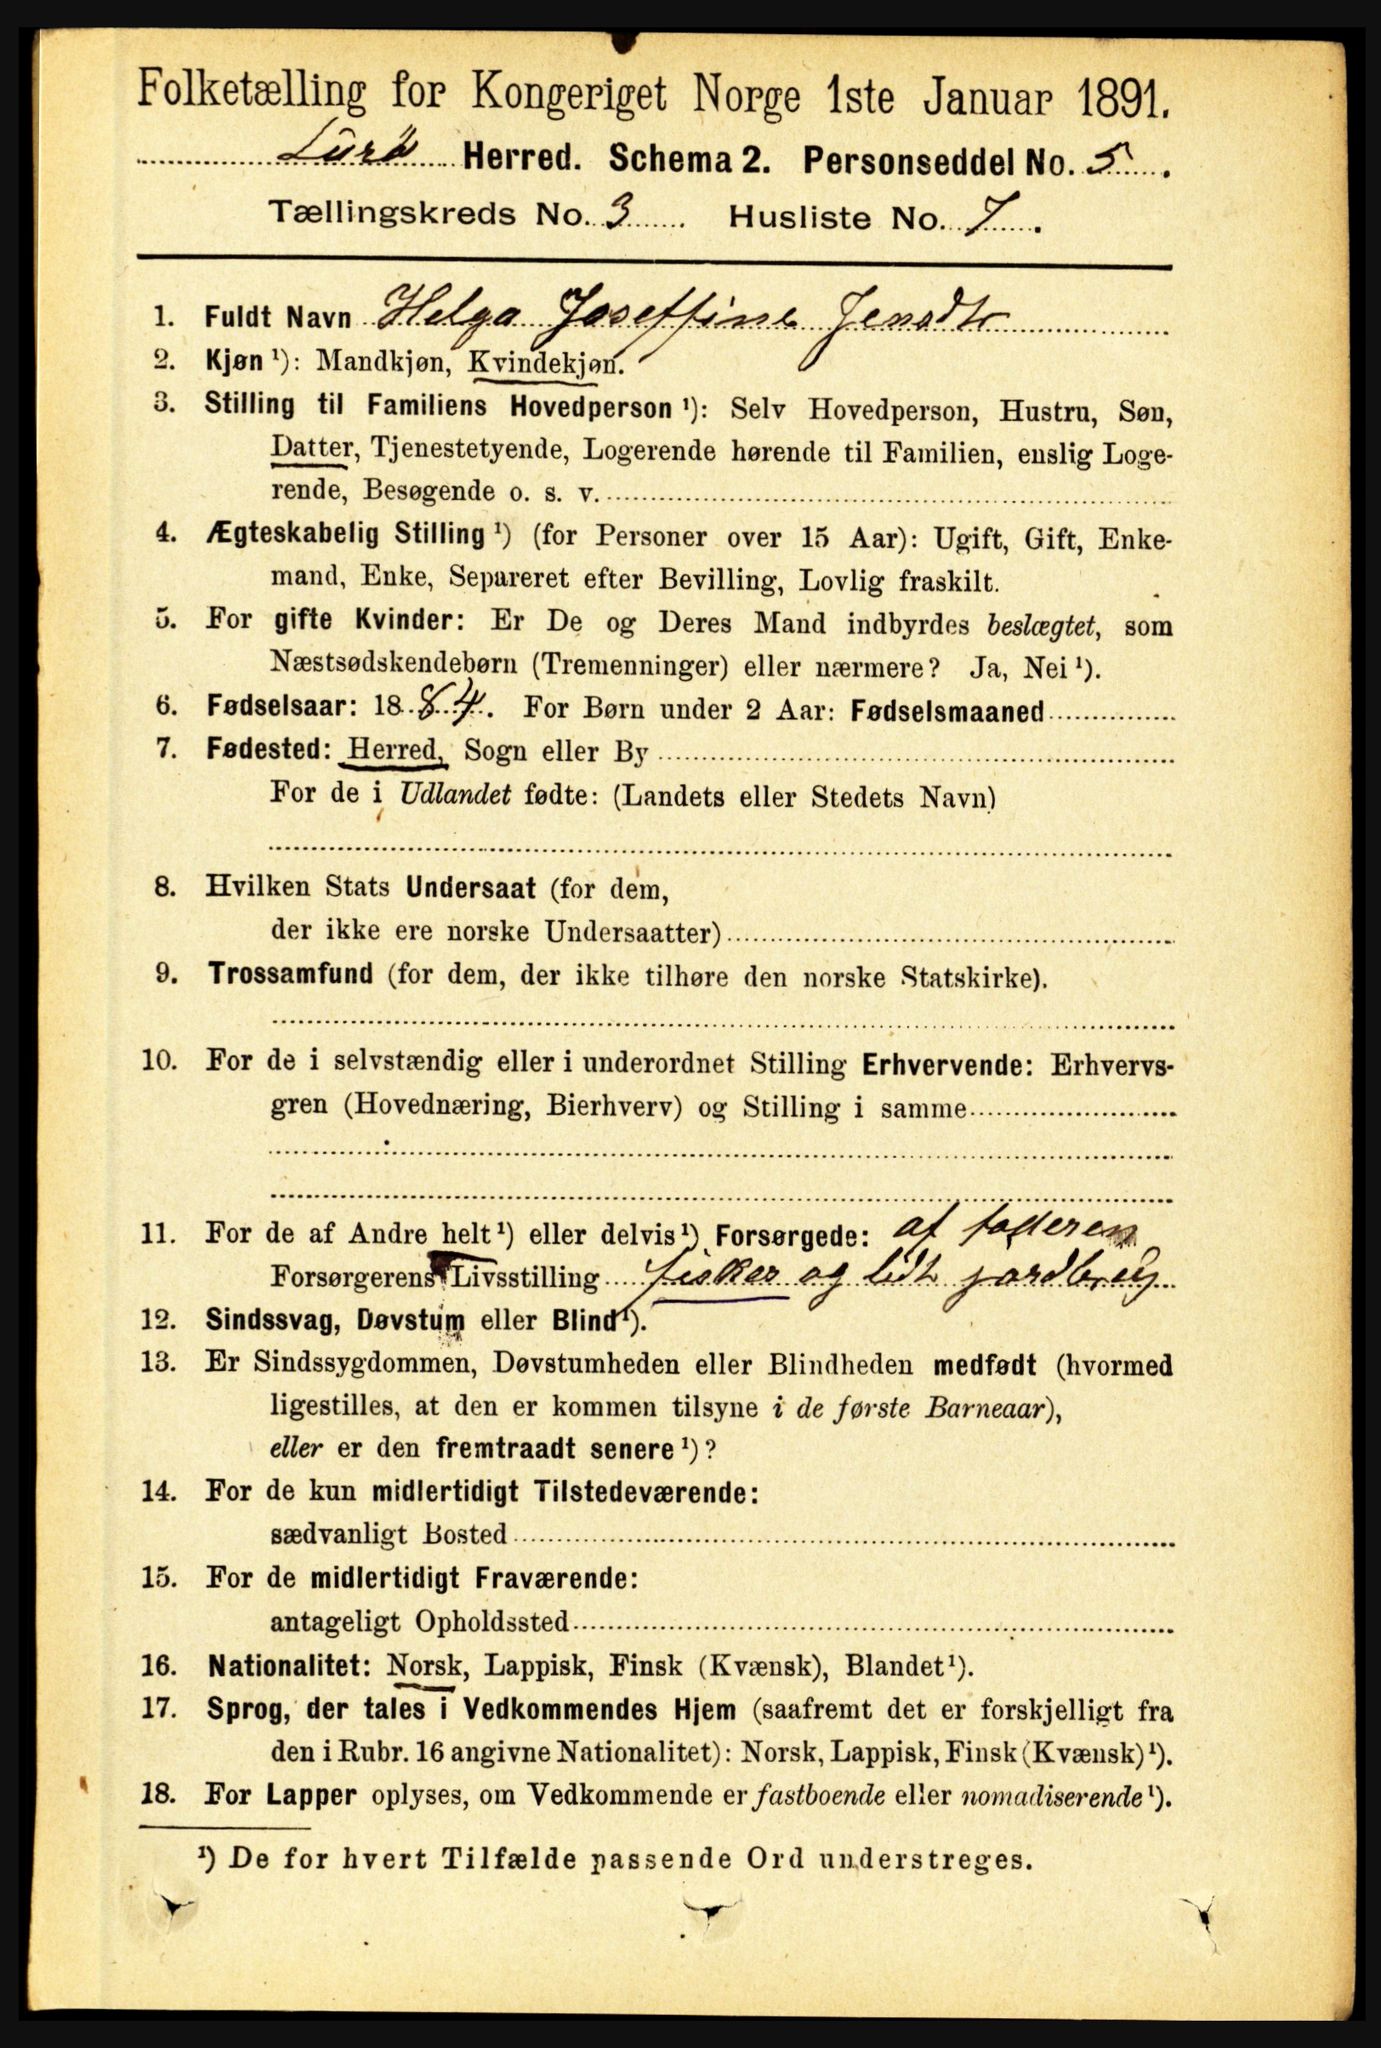 Folketælling for Kongeriget Norge 1ste Januar 1891.
Lurø Herred. Schema 2. Personseddel No. 5.
Tællingskreds No. 3 Husliste No. 7.
1. Fuldt Navn Helga Joseffine Jensdtr
2. Kjøn ¹): Mandkjøn, Kvindekjøn.
3. Stilling til Familiens Hovedperson ¹): Selv Hovedperson, Hustru, Søn,
Datter, Tjenestetyende, Logerende hørende til Familien, enslig Loge-
rende, Besøgende o. s. v.
4. Ægteskabelig Stilling ¹) (for Personer over 15 Aar): Ugift, Gift, Enke-
mand, Enke, Separeret efter Bevilling, Lovlig fraskilt.
5. For gifte Kvinder: Er De og Deres Mand indbyrdes beslægtet, som
Næstsødskendebørn (Tremenninger) eller nærmere? Ja, Nei ¹).
6. Fødselsaar: 1884. For Børn under 2 Aar: Fødselsmaaned
7. Fødested: Herred, Sogn eller By
For de i Udlandet fødte: (Landets eller Stedets Navn)
8. Hvilken Stats Undersaat (for dem,
der ikke ere norske Undersaatter)
9. Trossamfund (for dem, der ikke tilhøre den norske Statskirke).
10. For de i selvstændig eller i underordnet Stilling Erhvervende: Erhvervs-
gren (Hovednæring, Bierhverv) og Stilling i samme
11. For de af Andre helt ¹) eller delvis ¹) Forsørgede: af faderen
Forsørgerens Livsstilling fisker og lidt jordbrug
12. Sindssvag, Døvstum eller Blind ¹).
13. Er Sindssygdommen, Døvstumheden eller Blindheden medfødt (hvormed
ligestilles, at den er kommen tilsyne i de første Barneaar),
eller er den fremtraadt senere ¹)?
14. For de kun midlertidigt Tilstedeværende:
sædvanligt Bosted
15. For de midlertidigt Fraværende:
antageligt Opholdssted
16. Nationalitet: Norsk, Lappisk, Finsk (Kvænsk), Blandet ¹).
17. Sprog, der tales i Vedkommendes Hjem (saafremt det er forskjelligt fra
den i Rubr. 16 angivne Nationalitet): Norsk, Lappisk, Finsk (Kvænsk) ¹).
18. For Lapper oplyses, om Vedkommende er fastboende eller nomadiserende ¹).
¹) De for hvert Tilfælde passende Ord understreges.